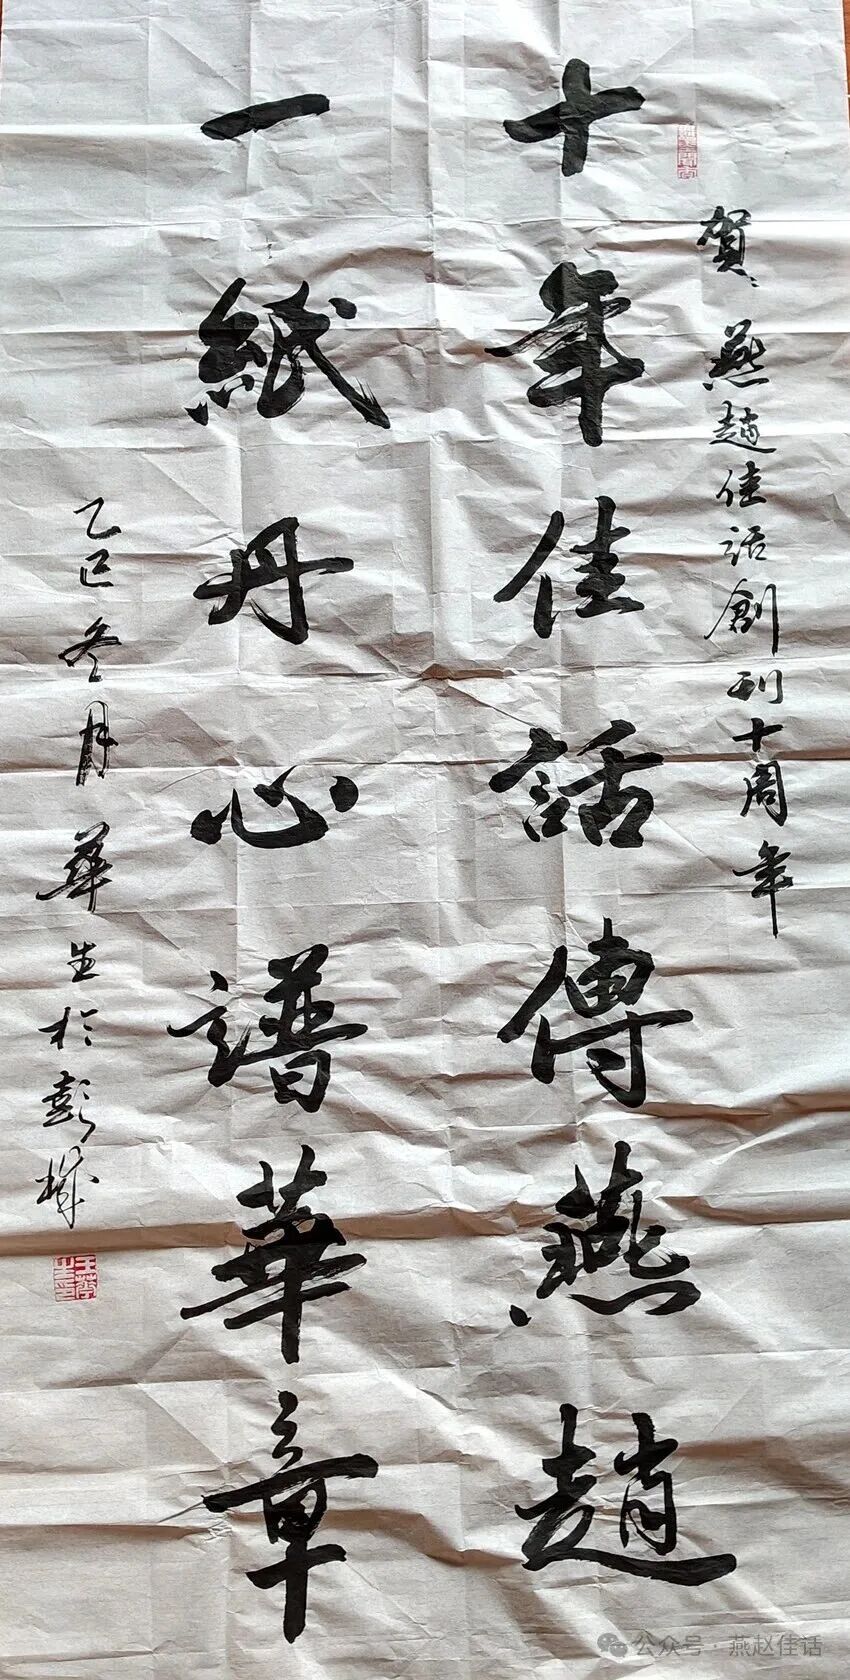 賀燕趙佳话創刊十周年
十年佳話傳燕趙
一紙丹心譜華章
乙巳冬月華生於彭城
公众号·燕赵佳话